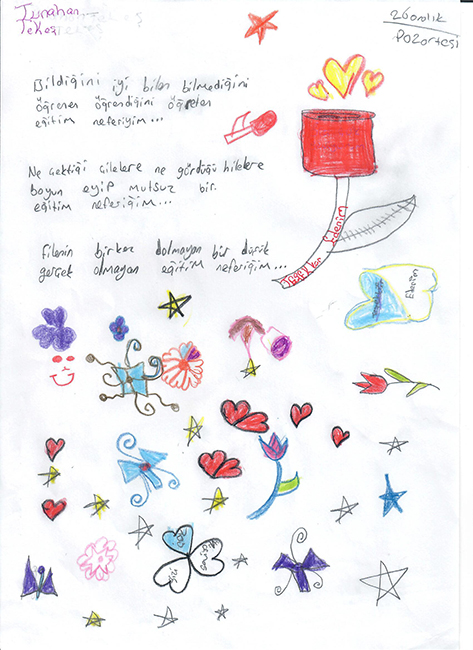 Tunahan...
Tekeşi
26 aralık
Pazartesi
Bildiğini iyi bilen bilmediğini
öğrenen öğrendiğini öğreten
eğitim neferiyim...
Ne çektiği çilelere ne gördüğü hilelere
boyun eyip mutsuz bir
eğitim neferiğim...
filenin birkez dolmayan bir düşük
gerçek olmayan eğitim neferiğim...
Teşekkür Ederim